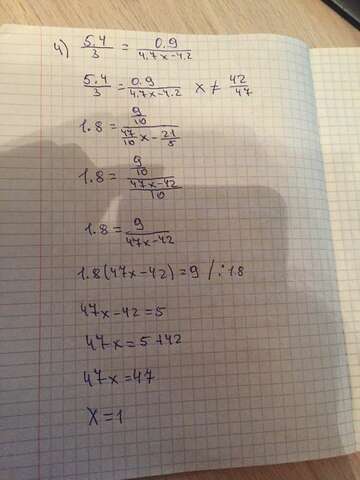 4) 5.4/3 = 0.9/4.7x-4.2
5.4/3 = 0.9/4.7x-4.2 x ≠ 42/47
1.8 = 9/10 / 47/10 x - 21/5
1.8 = 9/10 / 47x-42/10
1.8 = 9/47x-42
1.8(47x-42) = 9 /:1.8
47x-42 = 5
47x = 5+42
47x = 47
x = 1